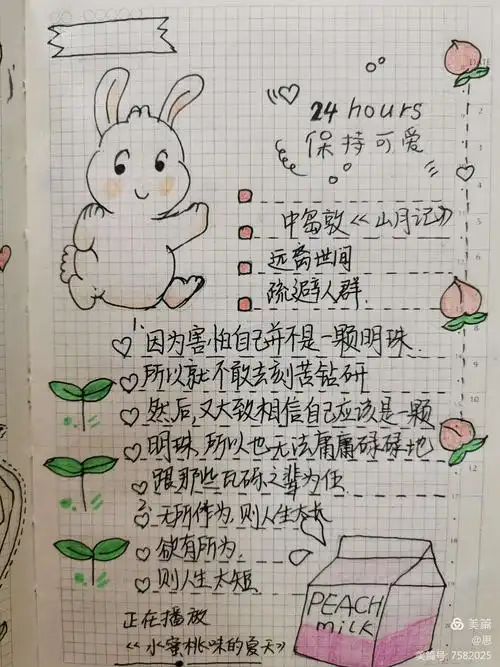 24 hours
保持可爱
中岛敦《山月记》
远离世间
疏避人群
因为害怕自己并不是一颗明珠
所以就不敢去刻苦钻研
然后,又大致相信自己应该是一颗
明珠,所以也无法庸庸碌碌地
跟那些瓦砾之辈为伍
无所作为,则人生太长
欲有所为,
则人生太短
PEACH
MiLK
正在播放
《水蜜桃味的夏天》
美篇 @思
美篇号: 7582025